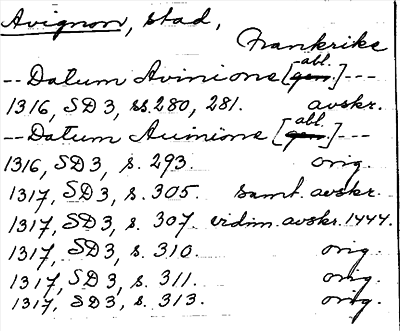 Avignon, stad,
Frankrike
-- Datum Avinione [gen. abl.] ---
1316, SD 3, ss. 280, 281. avskr.
-- Datum Auinione [gen. abl.] ---
1316, SD 3, s. 293. orig.
1317, SD 3, s. 305. samt. avskr.
1317, SD 3, s. 307. vidim. avskr. 1444.
1317, SD 3, s. 310. orig.
1317, SD 3, s. 311. orig.
1317, SD 3, s. 313. orig.